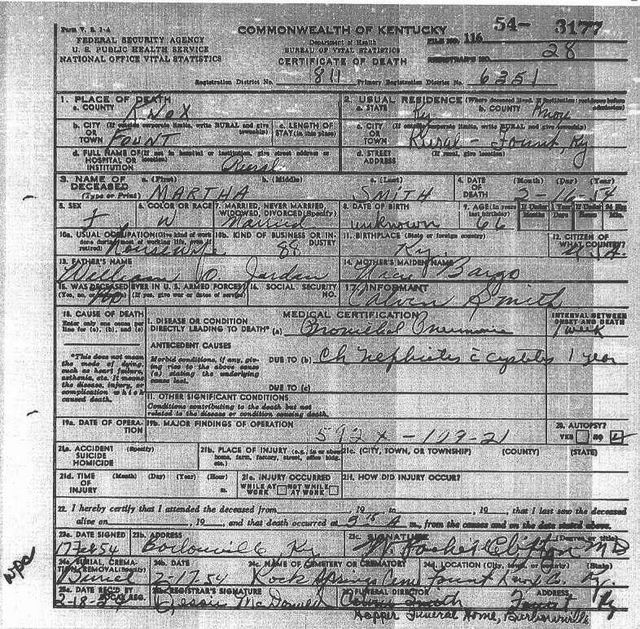 Form V. S. 1-A
FEDERAL SECURITY AGENCY
U. S. PUBLIC HEALTH SERVICE
NATIONAL OFFICE VITAL STATISTICS
COMMONWEALTH OF KENTUCKY
Department of Health
BUREAU OF VITAL STATISTICS
CERTIFICATE OF DEATH
FILE NO. 116 54- 3177
REGISTRAR'S NO. 28
Registration District No. 811 Primary Registration District No. 6351
1. PLACE OF DEATH
a. COUNTY KNOX
2. USUAL RESIDENCE (Where deceased lived. If institution: residence before admission)
a. STATE Ky b. COUNTY Knox
b. CITY (If outside corporate limits, write RURAL and give township) OR TOWN FOUNT
c. LENGTH OF STAY (in this place)
c. CITY OR TOWN Rural - Fount, Ky
d. FULL NAME OF (If not in hospital or institution, give street address or location) HOSPITAL OR INSTITUTION Rural
d. STREET ADDRESS (If rural, give location)
3. NAME OF DECEASED (Type or Print) a. (First) MARTHA b. (Middle) c. (Last) SMITH
4. DATE OF DEATH (Month) (Day) (Year) 2-16-54
5. SEX F
6. COLOR OR RACE W
7. MARRIED, NEVER MARRIED, WIDOWED, DIVORCED (Specify) Married
8. DATE OF BIRTH unknown
9. AGE (In years last birthday) 66
10a. USUAL OCCUPATION Housewife
10b. KIND OF BUSINESS OR INDUSTRY 88
11. BIRTHPLACE (State or foreign country) Ky.
12. CITIZEN OF WHAT COUNTRY? U.S.A.
13. FATHER'S NAME William O. Jordan
14. MOTHER'S MAIDEN NAME Bargo
15. WAS DECEASED EVER IN U. S. ARMED FORCES? (Yes, no, (If yes, give war or dates of service) No
16. SOCIAL SECURITY NO.
17. INFORMANT Calvin Smith
18. CAUSE OF DEATH
Enter only one cause per line for (a), (b), and (c)
MEDICAL CERTIFICATION
INTERVAL BETWEEN ONSET AND DEATH
I. DISEASE OR CONDITION DIRECTLY LEADING TO DEATH* (a) Bronichal Pneumonia 1 week
ANTECEDENT CAUSES
*This does not mean the mode of dying, such as heart failure, asthenia, etc. It means the disease, injury, or complication which caused death.
Morbid conditions, if any, giving rise to the above cause (a) stating the underlying cause last.
DUE TO (b) Ch Nephritis c cystitis 1 year
DUE TO (c)
II. OTHER SIGNIFICANT CONDITIONS
Conditions contributing to the death but not related to the disease or condition causing death.
19a. DATE OF OPERATION
19b. MAJOR FINDINGS OF OPERATION
592X-109-21
20. AUTOPSY? YES NO
21a. ACCIDENT SUICIDE HOMICIDE (Specify)
21b. PLACE OF INJURY (e.g., in or about home, farm, factory, street, office bldg., etc.)
21c. (CITY, TOWN, OR TOWNSHIP) (COUNTY) (STATE)
21d. TIME OF INJURY (Month) (Day) (Year) (Hour) m.
21e. INJURY OCCURRED WHILE AT WORK NOT WHILE AT WORK
21f. HOW DID INJURY OCCUR?
22. I hereby certify that I attended the deceased from , 19 , to , 19 , that I last saw the deceased
alive on , 19 , and that death occurred at A m., from the causes and on the date stated above.
23a. DATE SIGNED 17 Feb 54
23b. ADDRESS Barbourville Ky
23c. SIGNATURE (Degree or title) Clifton MD
24a. BURIAL, CREMATION, REMOVAL (Specify) Burial
24b. DATE 2-17-54
24c. NAME OF CEMETERY OR CREMATORY Rock Springs Cem
24d. LOCATION (City, town, or county) (State) Fount Knox Co. Ky.
25a. REC'D BY LOCAL REG. 2-18-54
25b. REGISTRAR'S SIGNATURE McDowell
FUNERAL DIRECTOR ADDRESS
Calvin Smith Fount Ky
Hopper Funeral Home, Barbourville